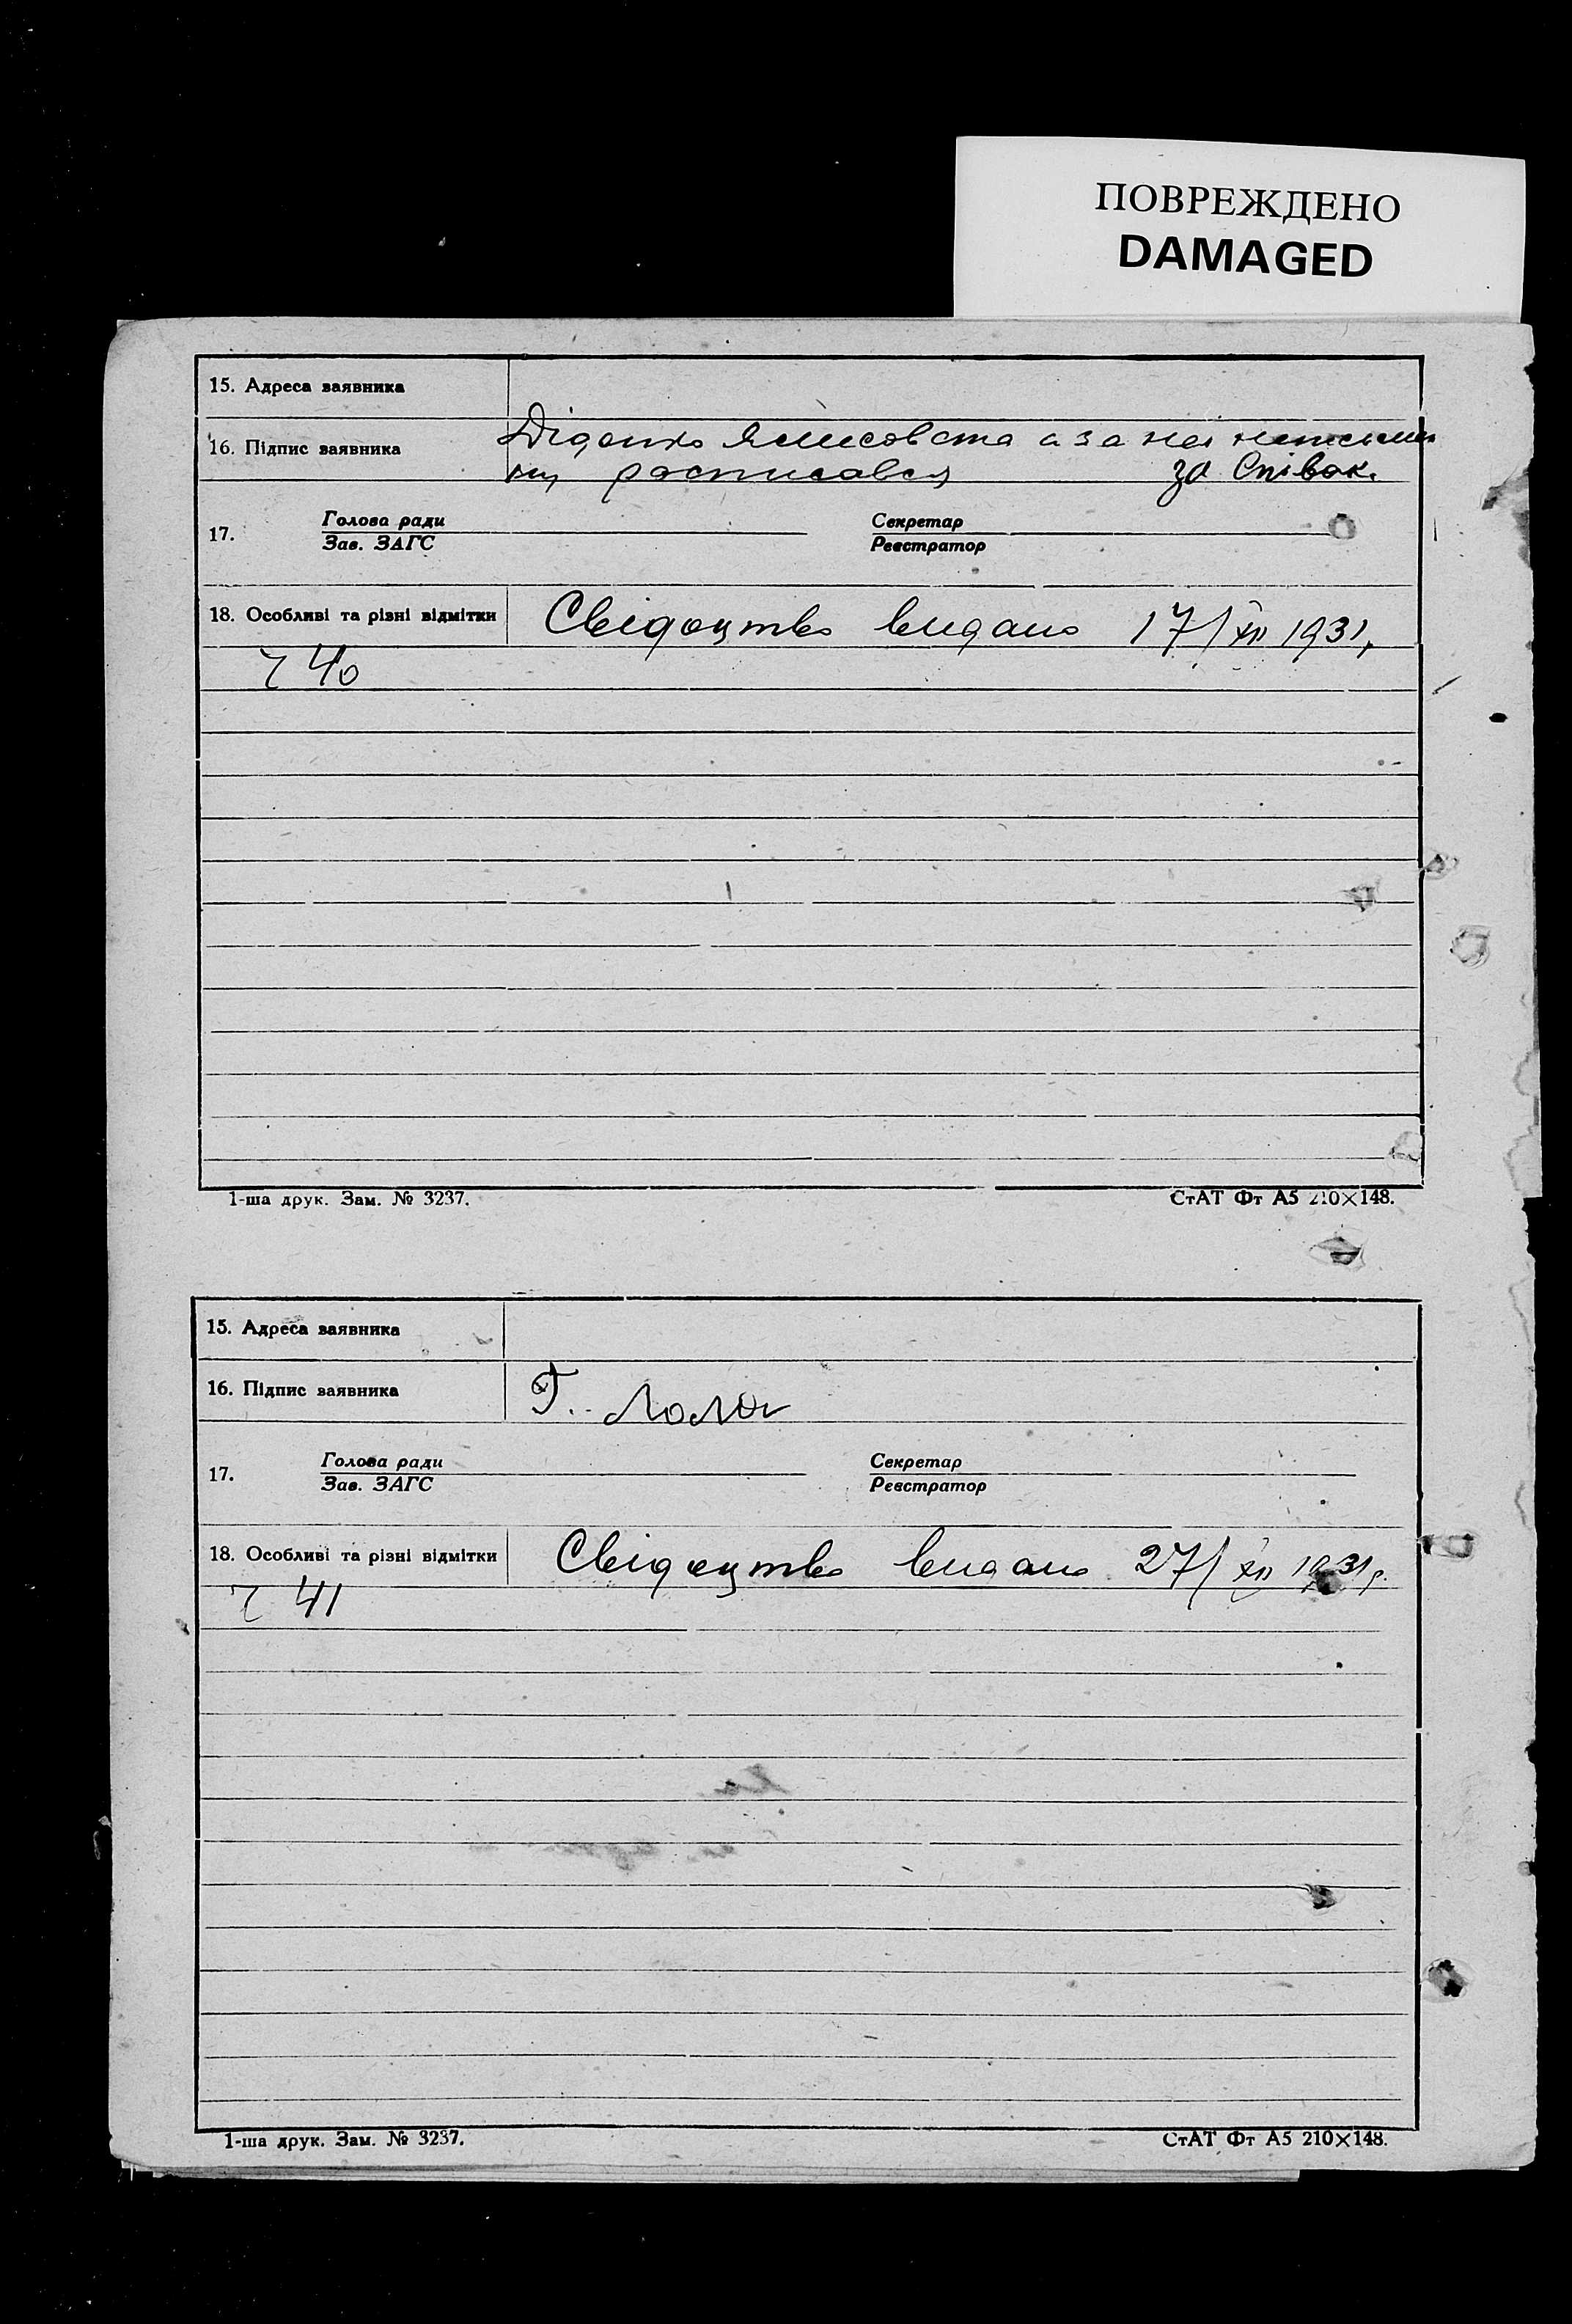 ПОВРЕЖДЕНО
DAMAGED
15. Адреса заявника
16. Підпис заявника
Діденко а за неї
расписався за Співак.
17. Голова ради Секретар
Зав. ЗАГС Реєстратор
18. Особливі та різні відмітки Свідоцтво видано 17/XII 1931р
40
1-ша друк. Зам. № 3237. СтАТ Фт А5 210×148.
15. Адреса заявника
16. Підпис заявника Г. Лола
17. Голова ради Секретар
Зав. ЗАГС Реєстратор
18. Особливі та різні відмітки Свідоцтво видано 27/XII 1931р.
41
1-ша друк. Зам. № 3237. СтАТ Фт А5 210×148.